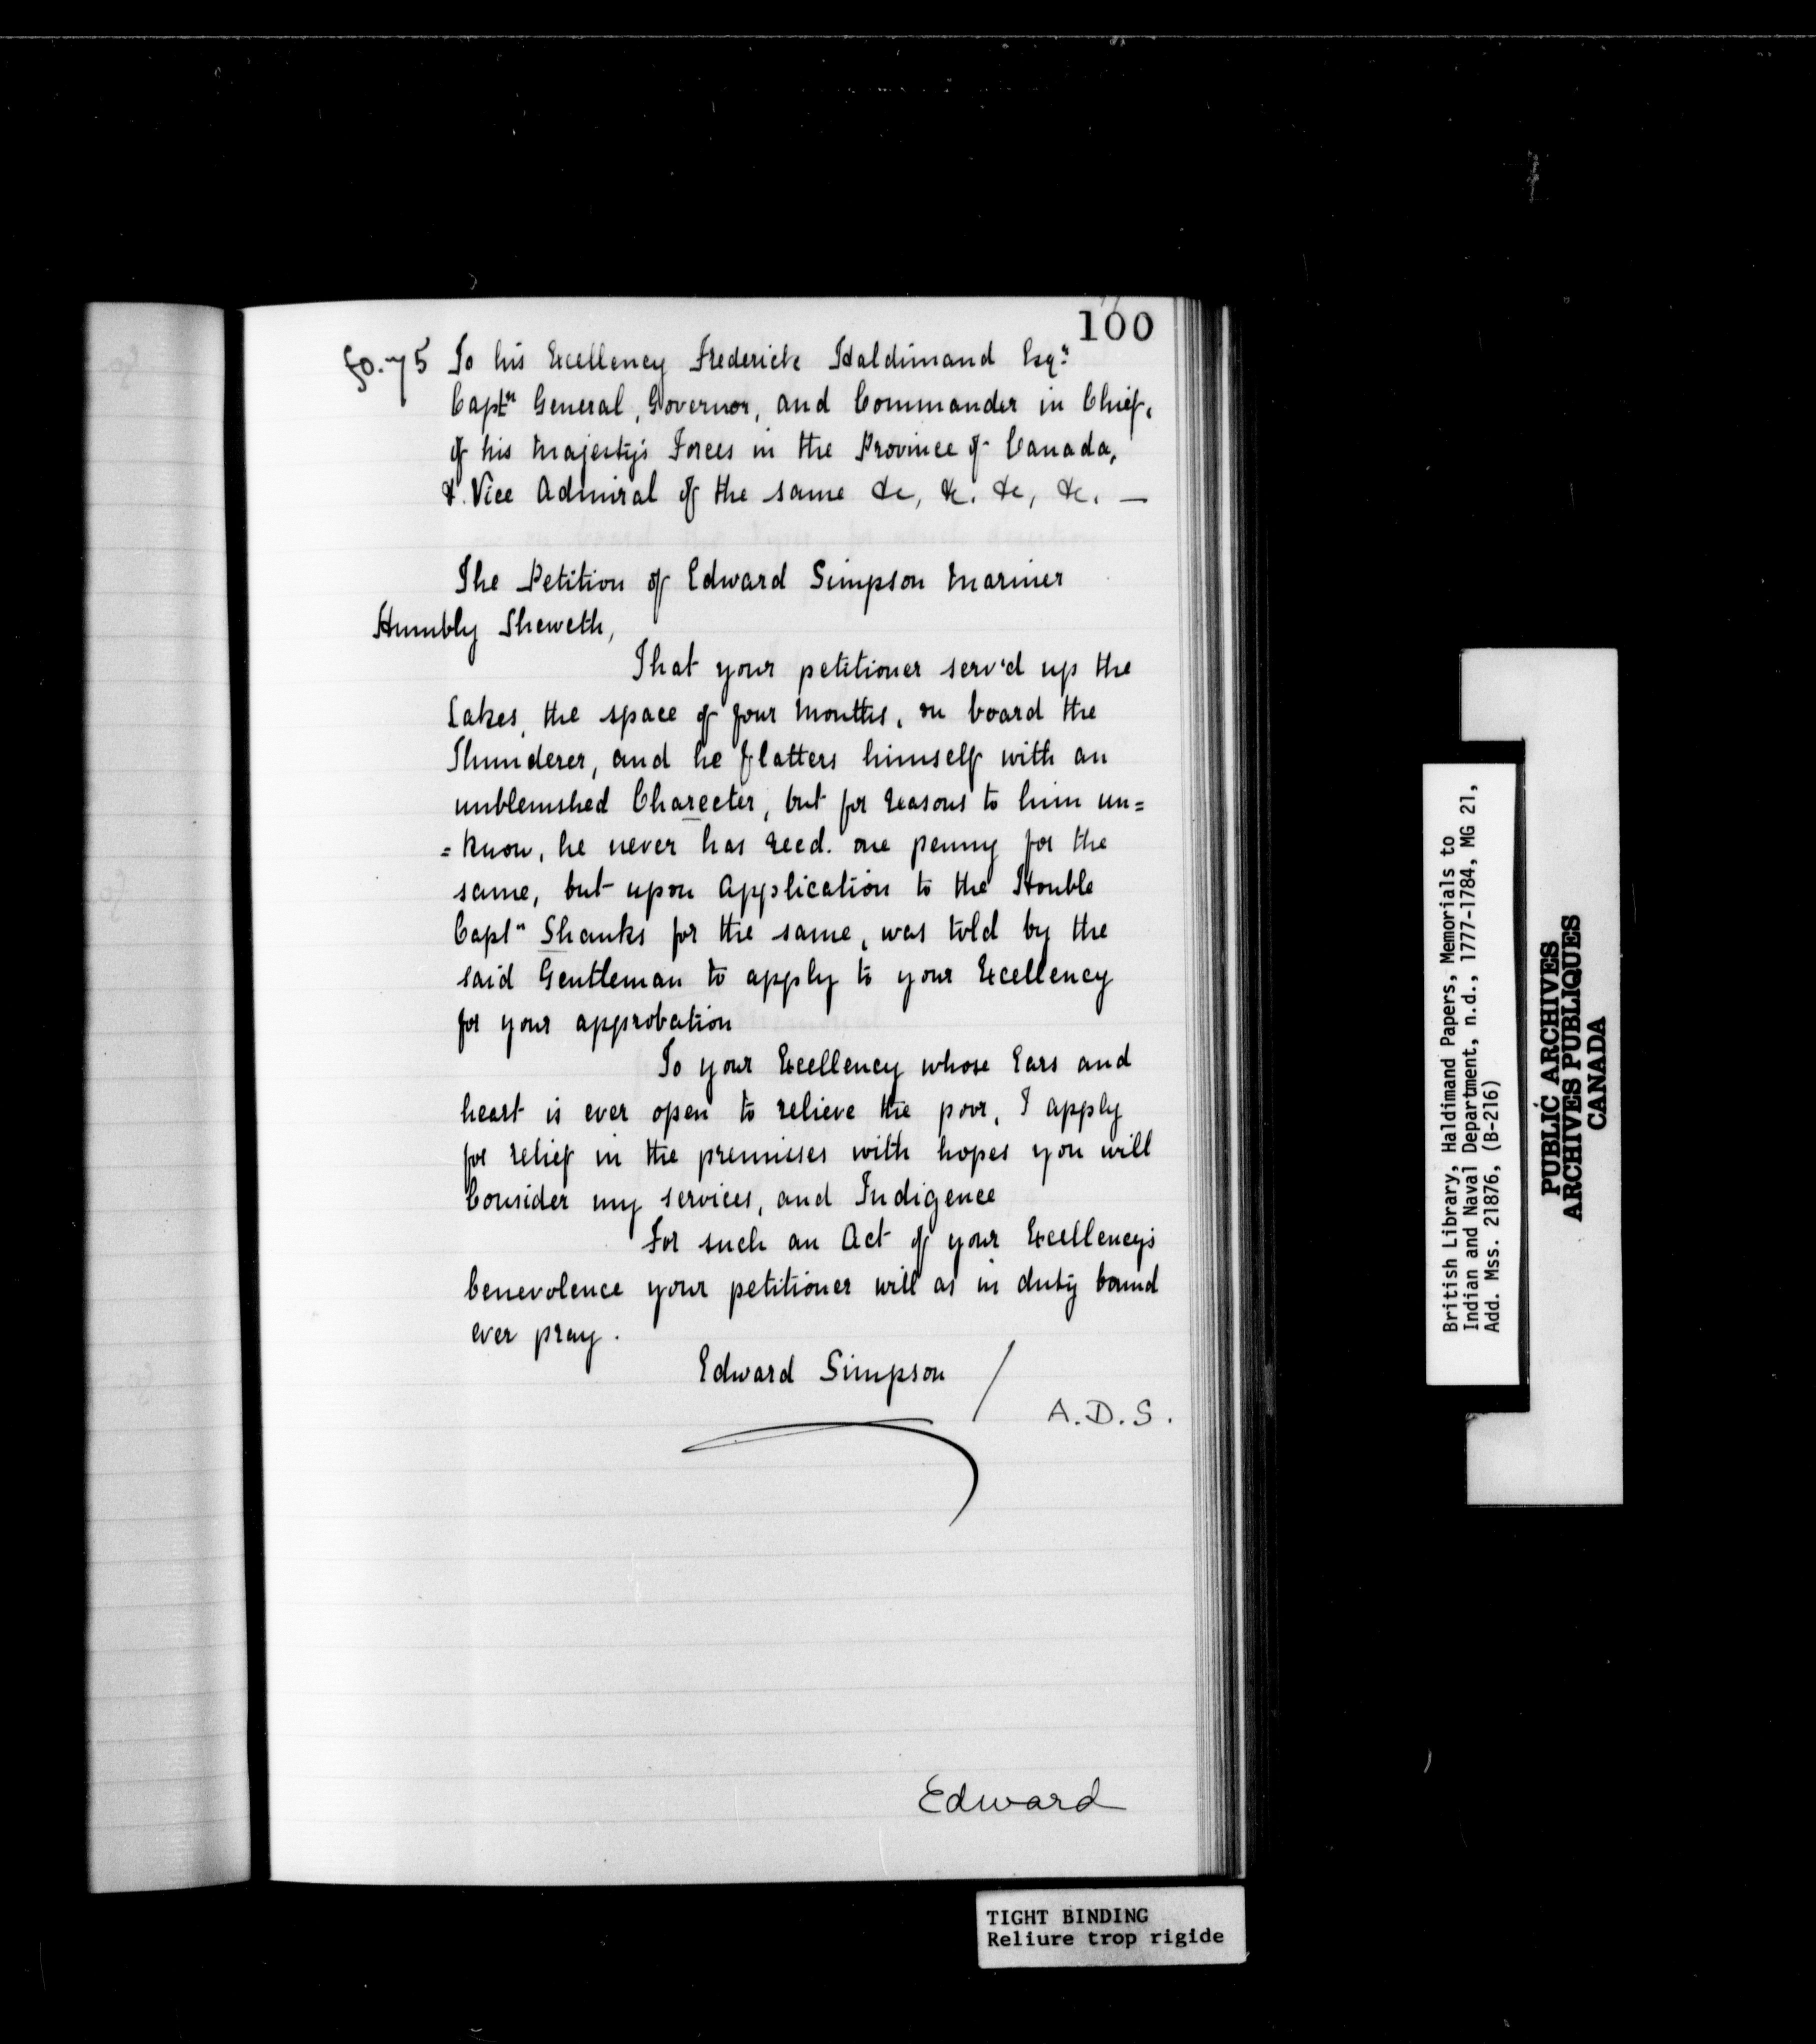 100
fo. 75 To his Excellency Frederick Haldimand Esqr
Captn General, Governor, and Commander in Chief,
of his Majesty's Forces in the Province of Canada,
& Vice Admiral of the same &c, &c. &c, &c. —
The Petition of Edward Simpson Mariner
Humbly Sheweth,
That your petitioner serv'd up the
Lakes, the space of four Months, on board the
Thunderer, and he flatters himself with an
unblemished Charecter, but for reasons to him un=
=know, he never has recd. one penny for the
same, but upon Application to the Honble
Captn Shanks for the same, was told by the
said Gentleman to apply to your Excellency
for your approbation
To your Excellency whose Ears and
heart is ever open to relieve the poor, I apply
for relief in the premisses with hopes you will
Consider my services, and Indigence
For such an Act of your Excellency's
benevolence your petitioner will as in duty bound
ever pray.
Edward Simpson /
A.D.S.
Edward
TIGHT BINDING
Reliure trop rigide
British Library, Haldimand Papers, Memorials to
Indian and Naval Department, n.d., 1777-1784, MG 21,
Add. Mss. 21876, (B-216)
PUBLIC ARCHIVES
ARCHIVES PUBLIQUES
CANADA